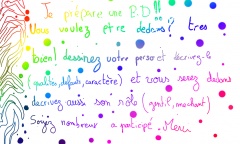 Je prépare une B.D !!
Vous voulez être dedans ? tres
bien ! dessinez votre perso et decrivez-le
(qualités, défauts, caractère) et vous serez dedans
decrivez aussi son rôle (gentil, mechant)
Soyez nombreux a participé. Merci